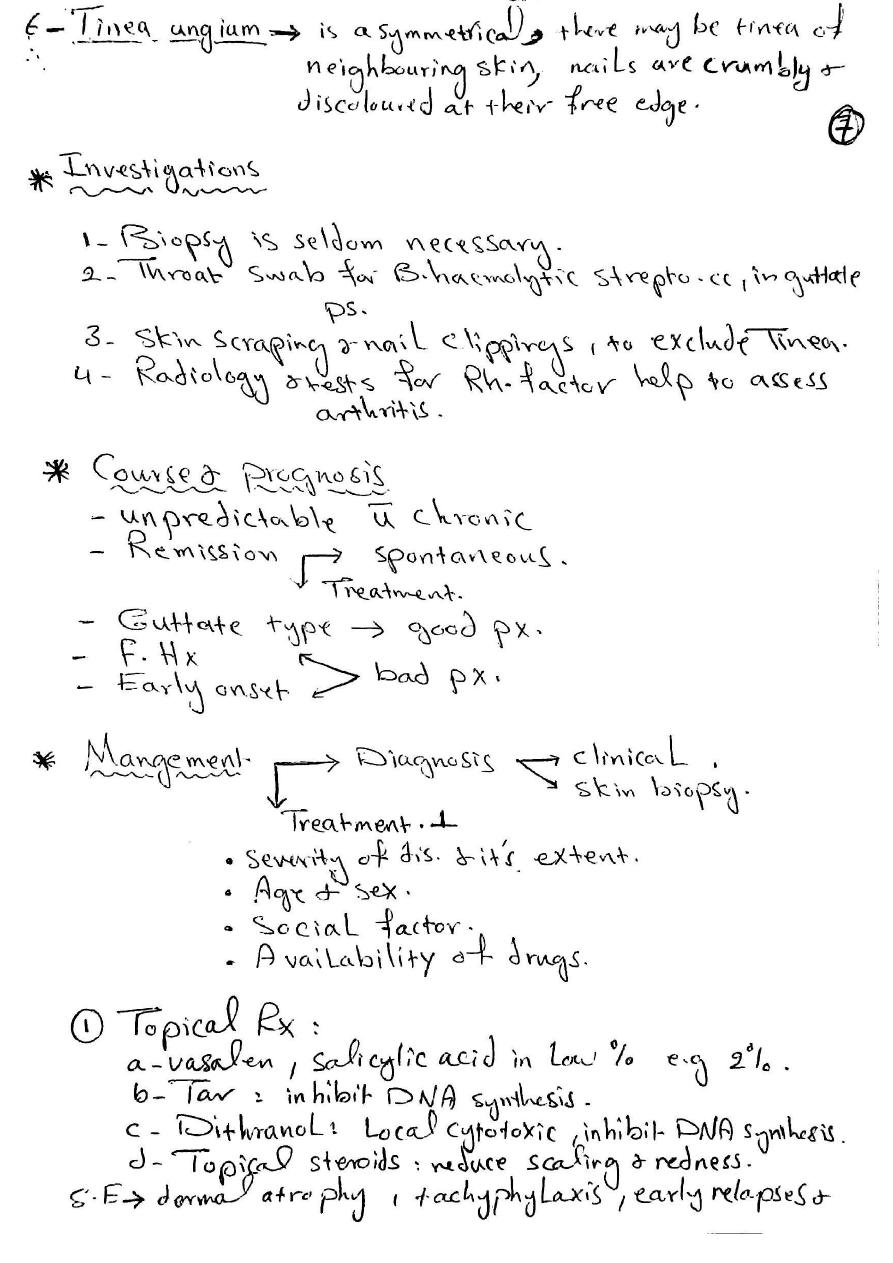 6 - Tinea ungium → is asymmetrical, there may be tinea of
neighbouring skin, nails are crumbly &
discoloured at their free edge.
7
* Investigations
1 - Biopsy is seldom necessary.
2 - Throat swab for B.haemolytic strepto.cc, in guttate
ps.
3 - Skin scraping & nail clippings, to exclude Tinea.
4 - Radiology & tests for Rh. factor help to assess
arthritis.
* Course & prognosis
- unpredictable ū chronic
- Remission → spontaneous.
Treatment.
- Guttate type → good px.
- F. Hx
- Early onset > bad px.
* Mangement → Diagnosis clinical.
skin biopsy.
Treatment. ⊥
• Severity of dis. & it's extent.
• Age & sex.
• Social factor.
• Availability of drugs.
① Topical Rx :
a - vasalen, salicylic acid in low % e.g 2%.
b - Tar : inhibit DNA synthesis.
c - Dithranol : Local cytotoxic, inhibit DNA synthesis.
d - Topical steroids : reduce scaling & redness.
S.E → dermal atrophy, tachyphylaxis, early relapses &